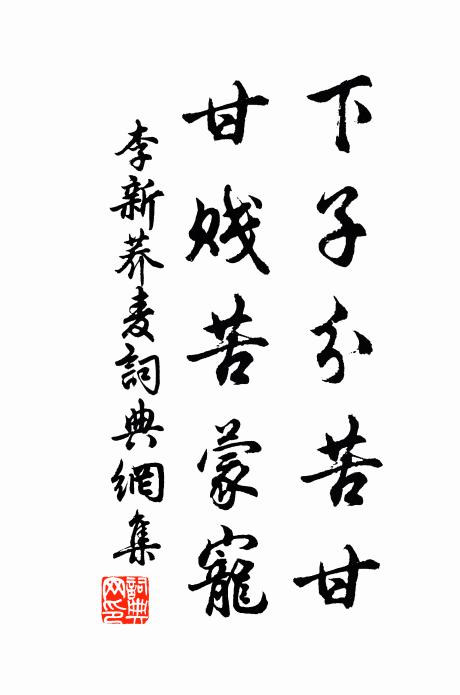 下子分苦甘
甘贱苦蒙寵
李新荞麦詞典網集
詞典
网印